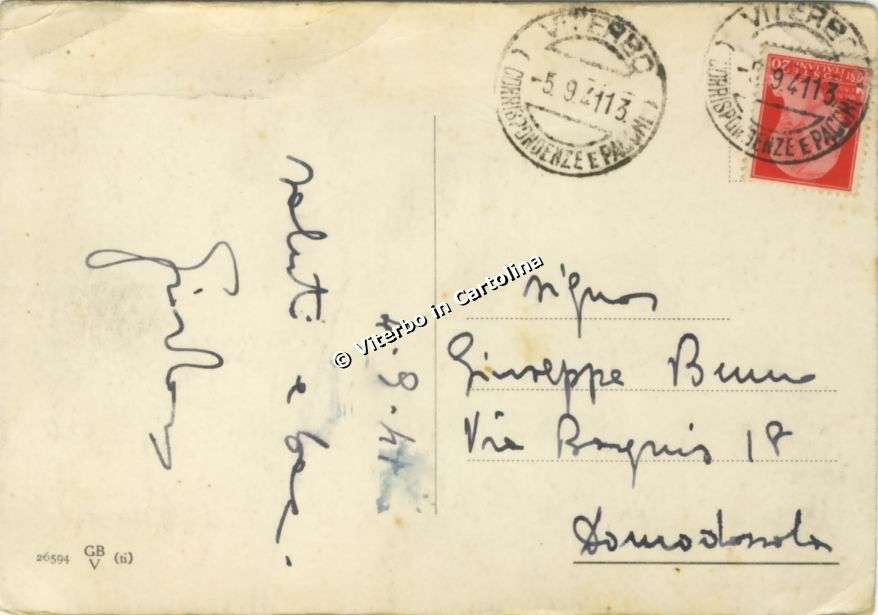 VITERBO
-5.9.41 13
(CORRISPONDENZE E PACCHI)
VITERBO
-5.9.41 13
(CORRISPONDENZE E PACCHI)
20
POSTE ITALIANE
saluti e baci.
© Viterbo in Cartolina
Signor
Giuseppe Bruno
Via 18
Domodossola
26594 GB V (ti)